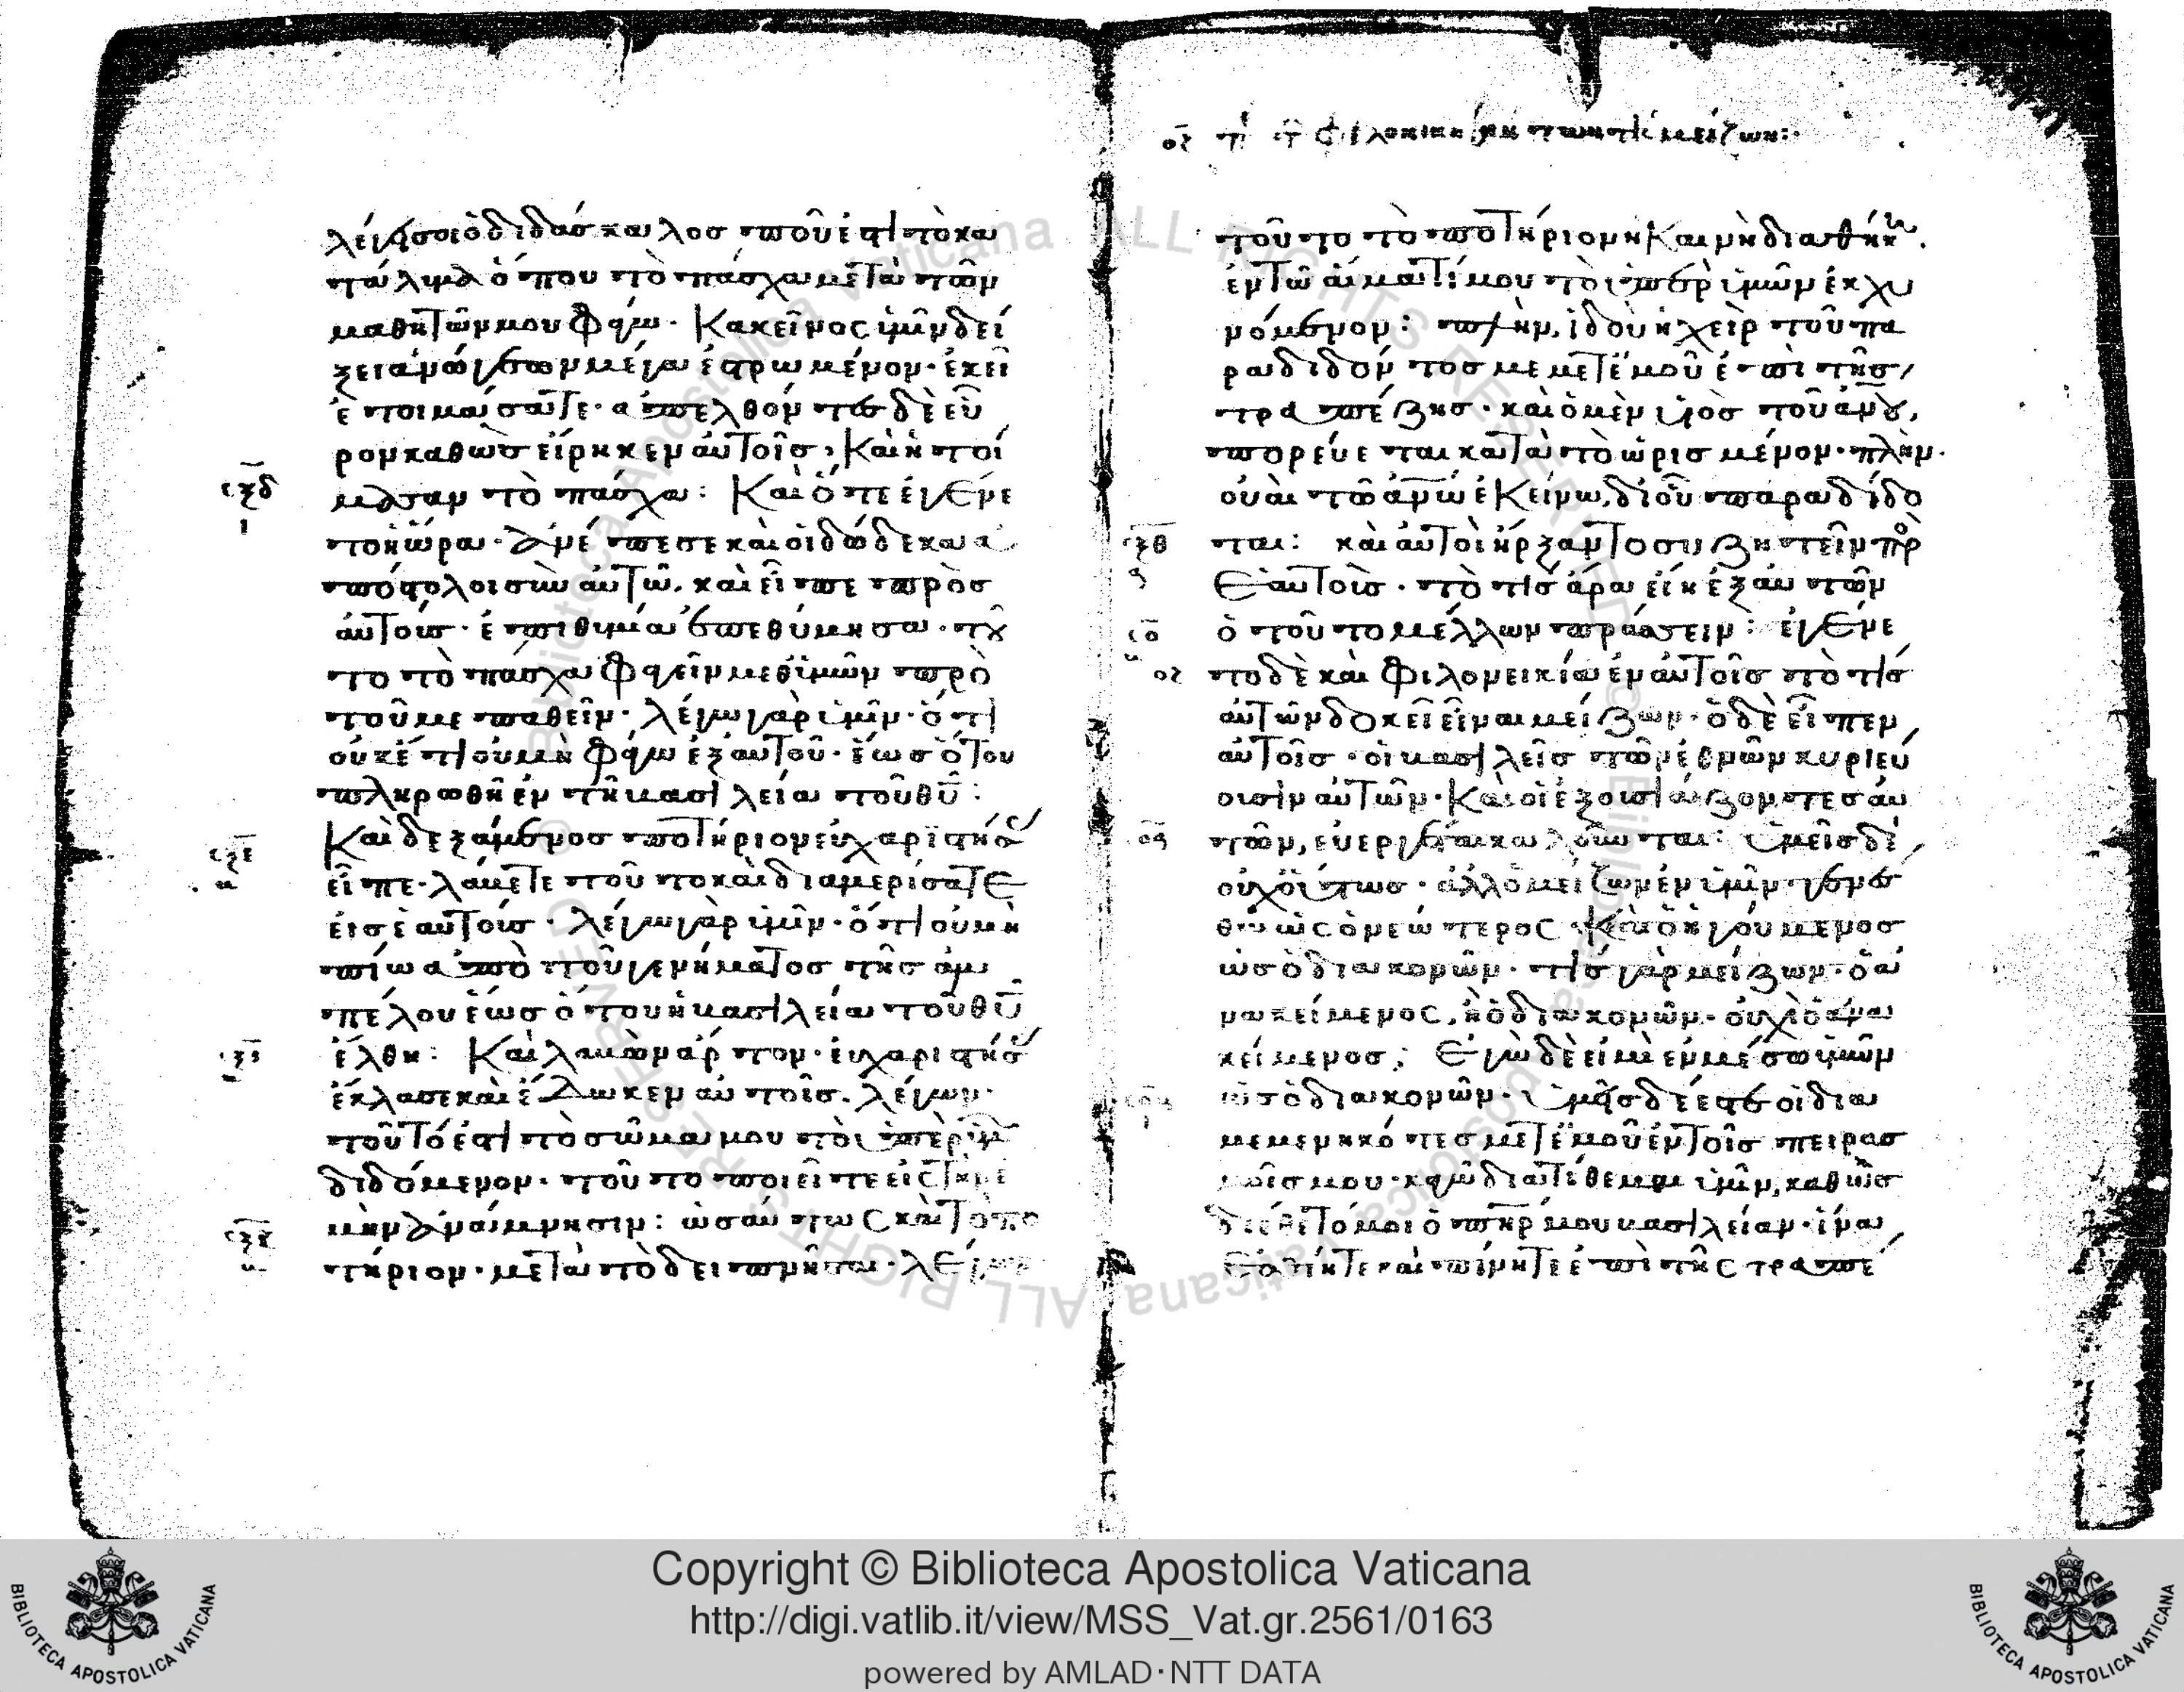 λέγει σοι ὁ διδάσκαλος ποῦ ἐστι τὸ κα
τάλυμα ὅπου τὸ πάσχα μετὰ τῶν
μαθητῶν μου φάγω· Κακεῖνος ὑμῖν δεί
ξει ἀνώγεων μέγα ἐστρωμένον· ἐκεῖ
ἑτοιμάσατε· ἀπελθόντες δὲ εὗ
ρον καθὼς εἴρηκεν αὐτοῖς, Καὶ ἡτοί
σξδ
ι
μασαν τὸ πάσχα: Καὶ ὅτε ἐγένε
το ἡ ὥρα· ἀνέπεσε καὶ οἱ δώδεκα ἀ
πόστολοι σὺν αὐτῷ. καὶ εἶπε πρὸς
αὐτούς· ἐπιθυμία ἐπεθύμησα· τοῦ
το τὸ πάσχα φαγεῖν μεθ' ὑμῶν πρὸ
τοῦ με παθεῖν· λέγω γὰρ ὑμῖν· ὅτι
οὐκέτι οὐ μὴ φάγω ἐξ αὐτοῦ· ἕως ὅτου
πληρωθῇ ἐν τῇ βασιλεία τοῦ θῦ:
σξε
β
Καὶ δεξάμενος ποτήριον εὐχαριστήσ
εἶπε· λάβετε τοῦτο καὶ διαμερίσατε
εἰς ἑαυτούς· λέγω γὰρ ὑμῖν· ὅτι οὐ μὴ
πίω ἀπὸ τοῦ γενήματος τῆς ἀμ
πέλου ἕως ὅτου ἡ βασιλεία τοῦ θῦ
ἔλθη: Καὶ λαβὼν ἄρτον· εὐχαριστήσ
ἔκλασε καὶ ἔδωκεν αὐτοῖς. λέγων·
τοῦτό ἐστι τὸ σῶμα μου τὸ ὑπὲρ ὑμ
διδόμενον· τοῦτο ποιεῖτε εἰς τὴν ἐ
μὴν ἀνάμνησιν: ὡσαύτως καὶ τὸ πο
τήριον· μετὰ τὸ δειπνῆσαι· λέγων
οζ π τ φιλονικησάντων τίς μείζων:
τοῦτο τὸ ποτήριον ἡ Καινὴ διαθήκη.
ἐν τῷ αἵματί μου τὸ ὑπὲρ ὑμῶν ἐκχυ
νόμενον: πλὴν, ἰδοὺ ἡ χεὶρ τοῦ πα
ραδιδόντος με μετ' ἐμοῦ ἐπὶ τῆς
τραπέζης· καὶ ὁ μὲν ὑιὸς τοῦ ἀνου,
πορεύεται κατὰ τὸ ὡρισμένον· πλὴν·
οὐαὶ τῷ ἀνω ἐκείνω, δι' οὗ παραδίδο
σξθ
ται: καὶ αὐτοὶ ἤρξαντο συζητεῖν πρ
ἑαυτοὺς· τὸ τίς ἄρα εἴη ἐξ αὐτῶν
σο
β
ὁ τοῦτο μέλλων πράσσειν: ἐγένε
οζ
το δὲ καὶ φιλονεικία ἐν αὐτοῖς τὸ τίς
αὐτῶν δοκεῖ εἶναι μείζων· ὁ δὲ εἶπεν
αὐτοῖς· οἱ βασιλεῖς τῶν ἐθνῶν κυριεύ
ουσιν αὐτῶν· Καὶ οἱ ἐξουσιάζοντες αὐ
τῶν, εὐεργέται καλοῦνται: ὑμεῖς δὲ
οὐχ οὕτως· ἀλλ' ὁ μείζων ἐν ὑμῖν· γενέσ
θω ὡς ὁ νεώτερος· Καὶ ὁ ἡγούμενος
ὡς ὁ διακονῶν· τίς γὰρ μείζων· ὁ ἀ
νακείμενος, ἢ ὁ διακονῶν· οὐχὶ ὁ ἀνα
κείμενος; Ἐγὼ δὲ εἰμὶ ἐν μέσω ὑμῶν
ὡς ὁ διακονῶν· ὑμεῖς δέ ἐστε οἱ δια
μεμενηκότες μετ' ἐμοῦ ἐν τοῖς πειρασ
μοῖς μου· κἀγὼ διατίθεμαι ὑμῖν, καθὼς
διέθετό μοι ὁ πηρ μου βασιλείαν· ἵνα
ἐσθίητε καὶ πίνητε ἐπὶ τῆς τραπέ
Copyright © Biblioteca Apostolica Vaticana
http://digi.vatlib.it/view/MSS_Vat.gr.2561/0163
powered by AMLAD・NTT DATA
BIBLIOTECA APOSTOLICA VATICANA
BIBLIOTECA APOSTOLICA VATICANA